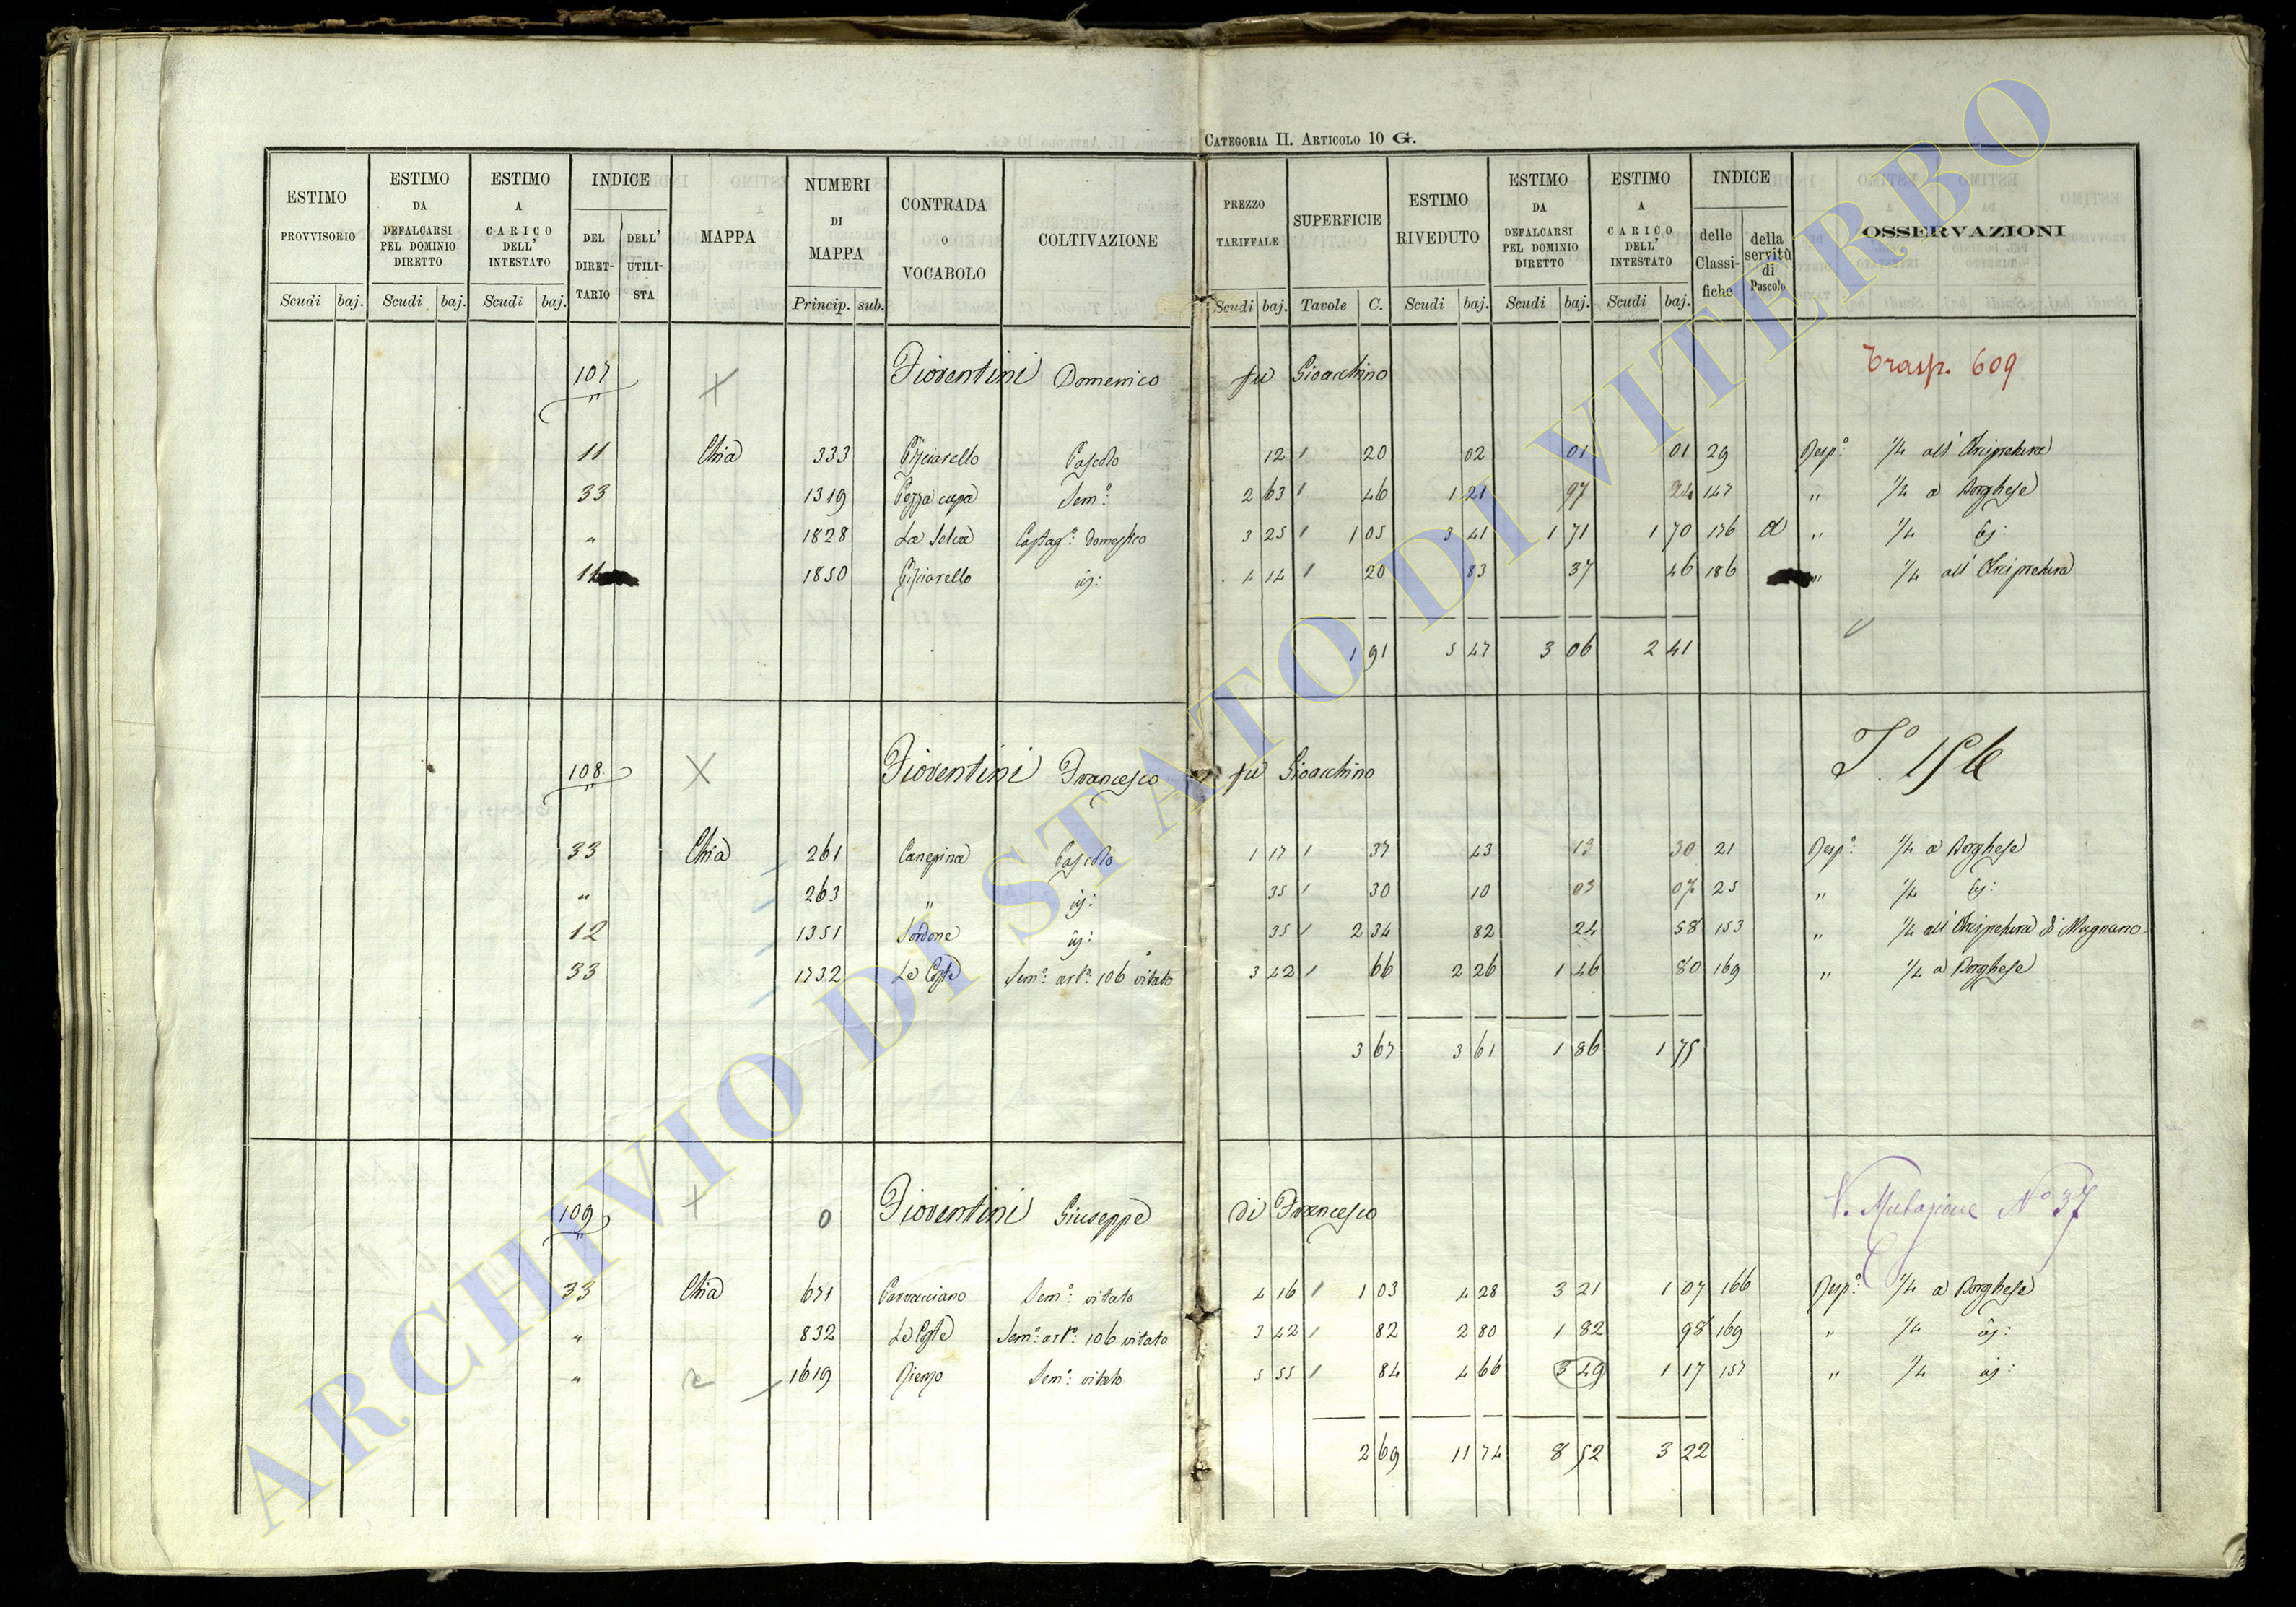 CATEGORIA II. ARTICOLO 10 G.
ESTIMO PROVVISORIO Scudi baj. | ESTIMO DA DEFALCARSI PEL DOMINIO DIRETTO Scudi baj. | ESTIMO A CARICO DELL' INTESTATO Scudi baj. | INDICE DEL DIRET-TARIO | DELL' UTILI-STA | MAPPA | NUMERI DI MAPPA Princip. sub. | CONTRADA o VOCABOLO | COLTIVAZIONE | PREZZO TARIFFALE Scudi baj. | SUPERFICIE Tavole C. | ESTIMO RIVEDUTO Scudi baj. | ESTIMO DA DEFALCARSI PEL DOMINIO DIRETTO Scudi baj. | ESTIMO A CARICO DELL' INTESTATO Scudi baj. | INDICE delle Classi-fiche | della servitù di Pascolo | OSSERVAZIONI
107 Fiorentini Domenico fu Gioacchino Trasp. 609
11 Chia 333 Pisciarello Pascolo 12 20 02 01 01 29 Risp.º ¼ all' Arcipretura
33 1319 Pozza cupa Sem.º 2 63 46 1 21 97 24 147 " ¼ a Borghese
" 1828 La Selva Castag.º domestico 3 25 1 05 3 41 1 71 1 70 176 a " ¼ ìg:
11 1850 Pisciarello ìg: 4 14 20 83 37 46 186 " ¼ all' Arcipretura
1 91 5 47 3 06 2 41
108 Fiorentini Francesco fu Gioacchino Tº. 156
33 Chia 261 Canepina Pascolo 1 17 37 43 13 30 21 Risp.º ¼ a Borghese
" 263 " ìg: 35 30 10 03 07 25 " ¼ ìg:
12 1351 Sordone ìg: 35 2 34 82 24 58 153 " ¼ all' Arcipretura di Mugnano
33 1732 Le Coste Sem.º art.º 106 vitato 3 42 66 2 26 1 46 80 169 " ¼ a Borghese
3 67 3 61 1 86 1 75
109 0 Fiorentini Giuseppe di Francesco V. Mutazione Nº 37
33 Chia 671 Sem.º vitato 4 16 1 03 4 28 3 21 1 07 166 Risp.º ¼ a Borghese
" 832 Le Coste Sem.º art.º 106 vitato 3 42 82 2 80 1 82 98 169 " ¼ ìg:
" 1619 Sem.º vitato 5 55 84 4 66 3 49 1 17 157 " ¼ ìg:
2 69 11 74 8 52 3 22
ARCHIVIO DI STATO DI VITERBO